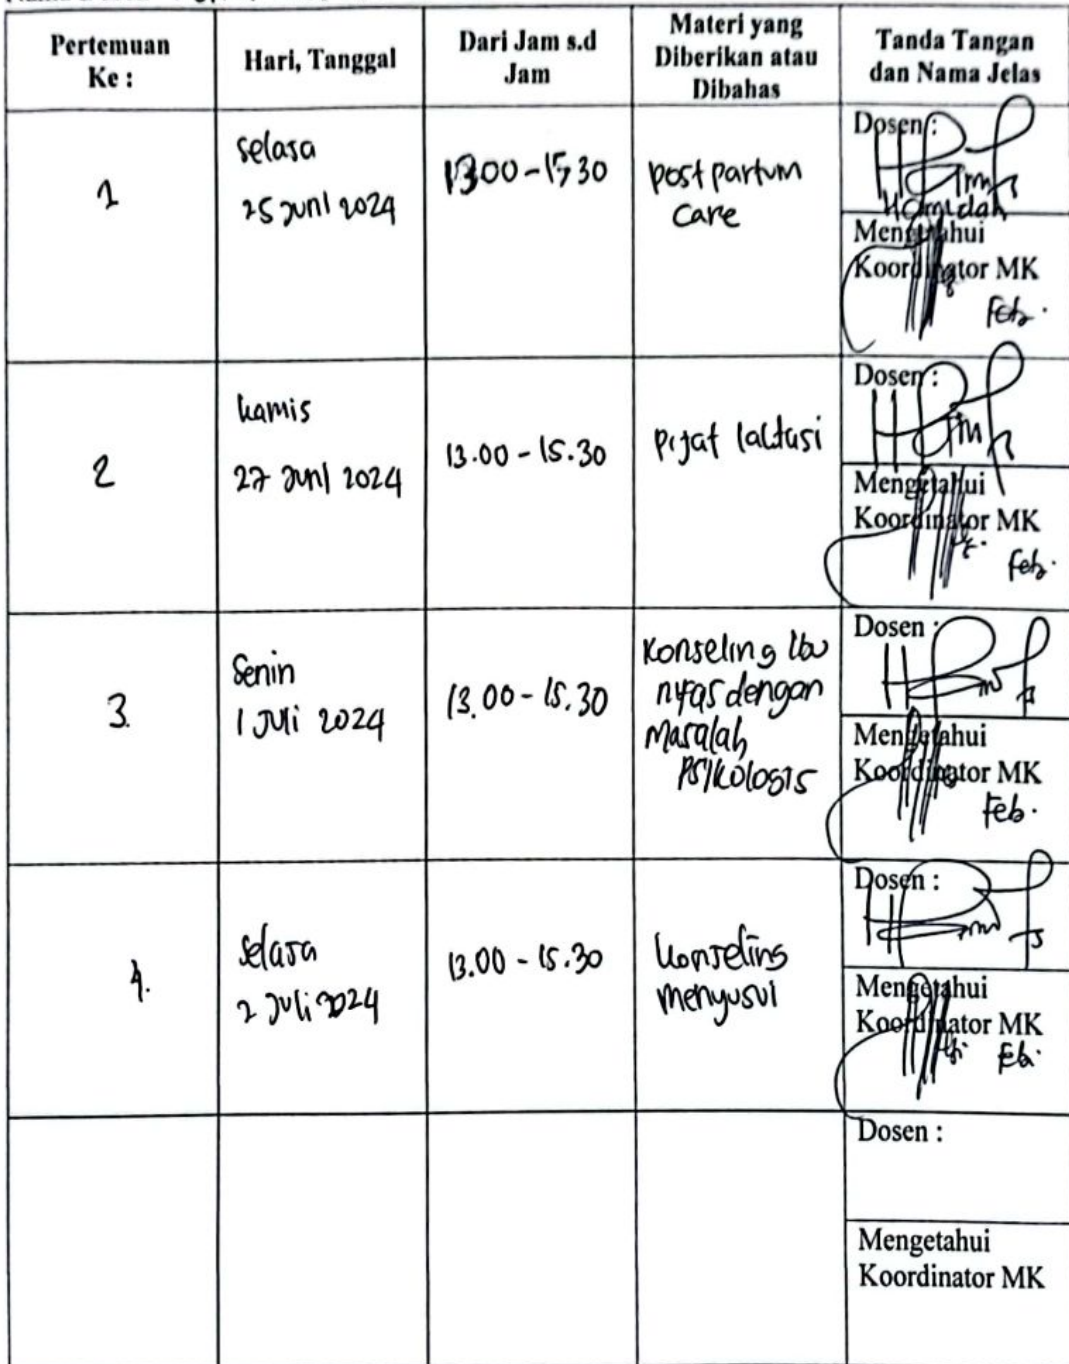 Pertemuan
Ke :
Hari, Tanggal
Dari Jam s.d
Jam
Materi yang
Diberikan atau
Dibahas
Tanda Tangan
dan Nama Jelas
1
selasa
25 Juni 2024
13.00 - 15.30
post partum
care
Dosen :
Hamidah
Mengetahui
Koordinator MK
Feb.
2
kamis
27 Juni 2024
13.00 - 15.30
pijat laktasi
Dosen :
Mengetahui
Koordinator MK
Feb.
3.
Senin
1 Juli 2024
13.00 - 15.30
Konseling Ibu
nifas dengan
masalah
psikologis
Dosen :
Mengetahui
Koordinator MK
Feb.
4.
Selasa
2 Juli 2024
13.00 - 15.30
konseling
menyusui
Dosen :
Mengetahui
Koordinator MK
Feb.
Dosen :
Mengetahui
Koordinator MK